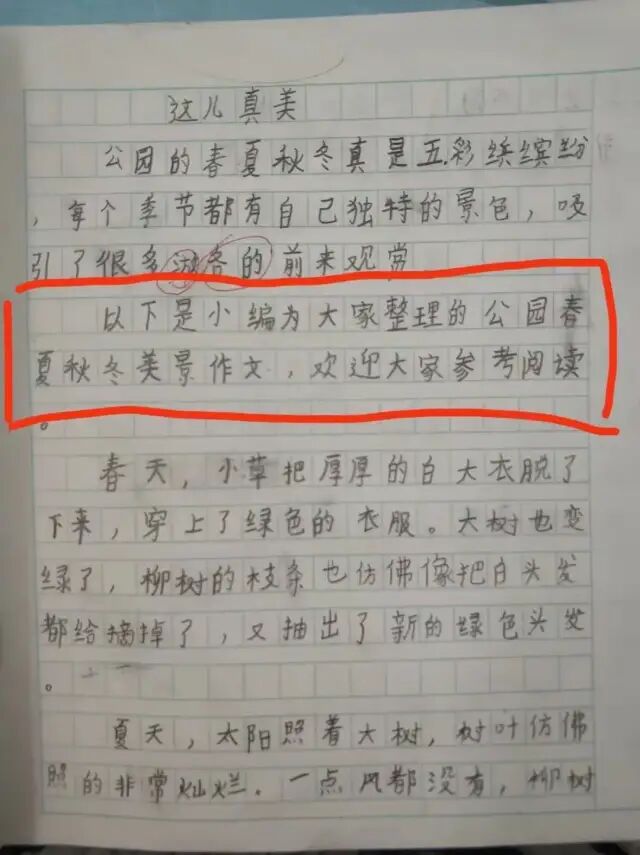 这儿真美
公园的春夏秋冬真是五彩缤缤纷
，每个季节都有自己独特的景色，吸
引了很多游客的前来观常
以下是小编为大家整理的公园春
夏秋冬美景作文，欢迎大家参考阅读
。
春天，小草把厚厚的白大衣脱了
下来，穿上了绿色的衣服。大树也变
绿了，柳树的枝条也仿佛像把白头发
都给摘掉了，又抽出了新的绿色头发
。
夏天，太阳照着大树，树叶仿佛
照的非常灿烂。一点风都没有，柳树